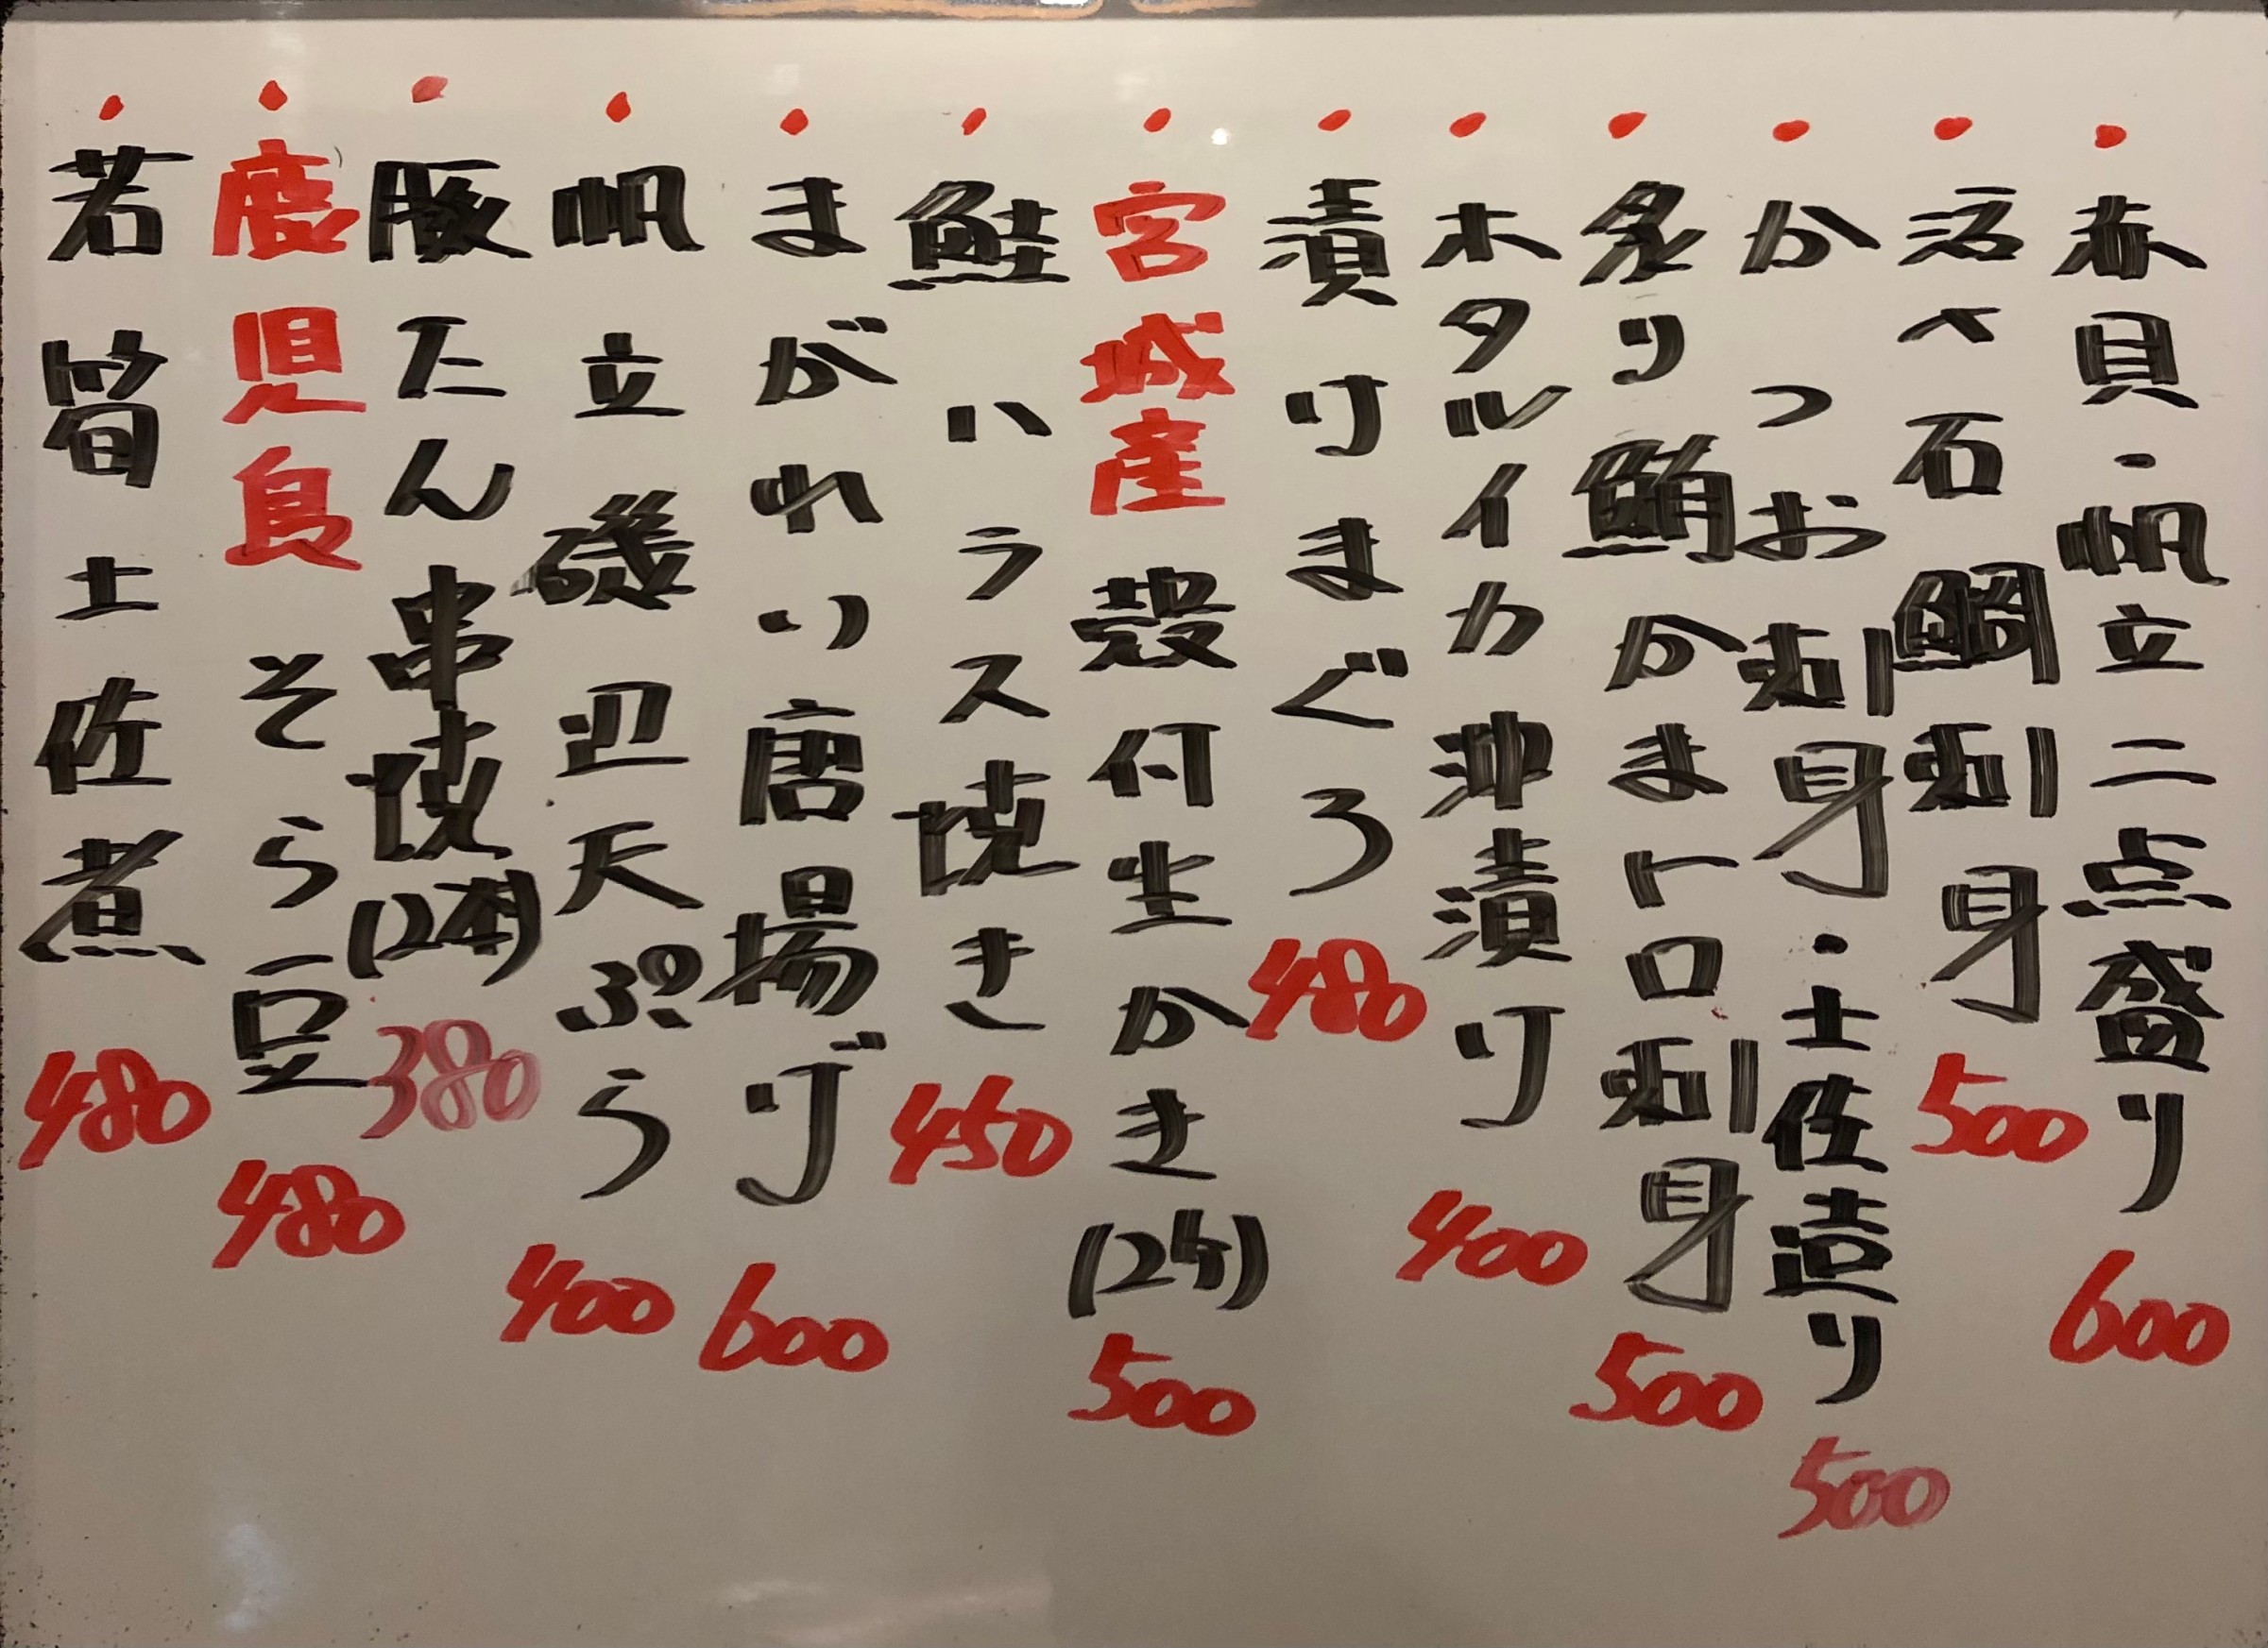 ・赤貝・帆立二点盛り 600
・活〆石鯛刺身 500
・かつお刺身・土佐造り 500
・炙り鮪かまトロ刺身 500
・ホタルイカ沖漬り 400
・漬けまぐろ 480
・宮城産殻付生かき(2ケ) 500
・鮭ハラス焼き 450
・まがれい唐揚げ 600
・帆立磯辺天ぷら 400
・豚たん串焼(2本) 380
・鹿児島そら豆 480
・若筍土佐煮 480